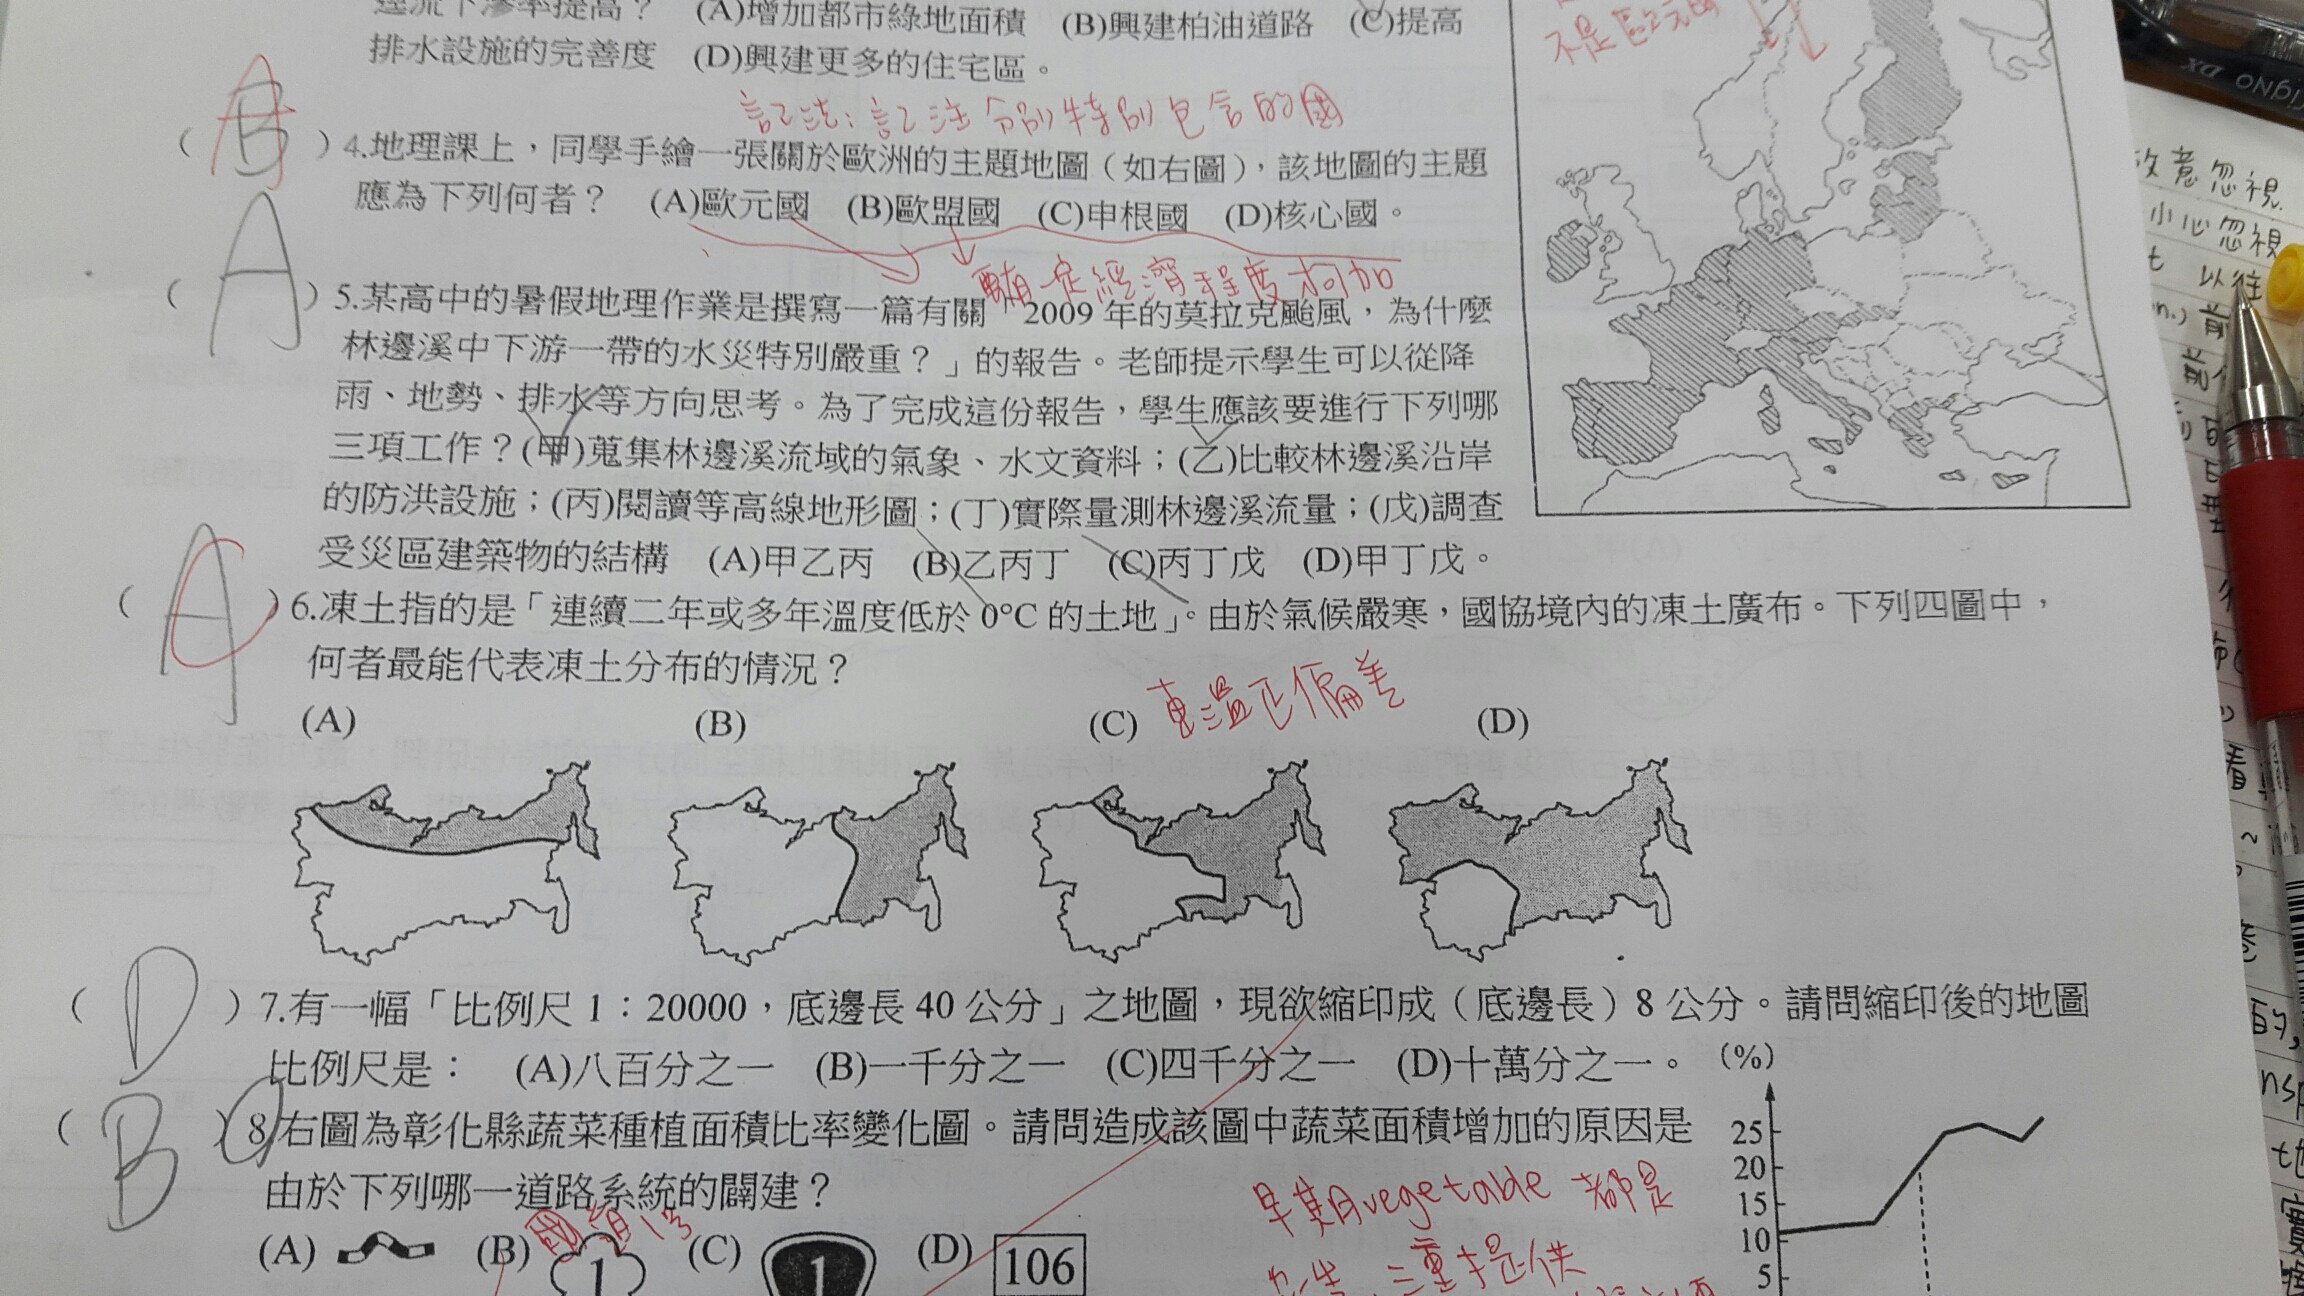 逕流下滲率提高？ (A)增加都市綠地面積 (B)興建柏油道路 (C)提高
排水設施的完善度 (D)興建更多的住宅區。
不是歐元國
記法：記法分別特別包含的國
( B A )4.地理課上，同學手繪一張關於歐洲的主題地圖（如右圖），該地圖的主題
應為下列何者？ (A)歐元國 (B)歐盟國 (C)申根國 (D)核心國。
有一定經濟程度才可加
( A )5.某高中的暑假地理作業是撰寫一篇有關「2009 年的莫拉克颱風，為什麼
林邊溪中下游一帶的水災特別嚴重？」的報告。老師提示學生可以從降
雨、地勢、排水等方向思考。為了完成這份報告，學生應該要進行下列哪
三項工作？(甲)蒐集林邊溪流域的氣象、水文資料；(乙)比較林邊溪沿岸
的防洪設施；(丙)閱讀等高線地形圖；(丁)實際量測林邊溪流量；(戊)調查
受災區建築物的結構 (A)甲乙丙 (B)乙丙丁 (C)丙丁戊 (D)甲丁戊。
( A C )6.凍土指的是「連續二年或多年溫度低於 0°C 的土地」。由於氣候嚴寒，國協境內的凍土廣布。下列四圖中，
何者最能代表凍土分布的情況？
(A) (B) (C) 溫正偏差 (D)
( D )7.有一幅「比例尺 1：20000，底邊長 40 公分」之地圖，現欲縮印成（底邊長）8 公分。請問縮印後的地圖
比例尺是： (A)八百分之一 (B)一千分之一 (C)四千分之一 (D)十萬分之一。
( B )8.右圖為彰化縣蔬菜種植面積比率變化圖。請問造成該圖中蔬菜面積增加的原因是
由於下列哪一道路系統的闢建？
國道1號
(A) (B) 1 (C) 1 (D) 106
早期vegetable 都是
三重提供
(%)
25
20
15
10
5
故意忽視
小心忽視
以往
UNO
DX